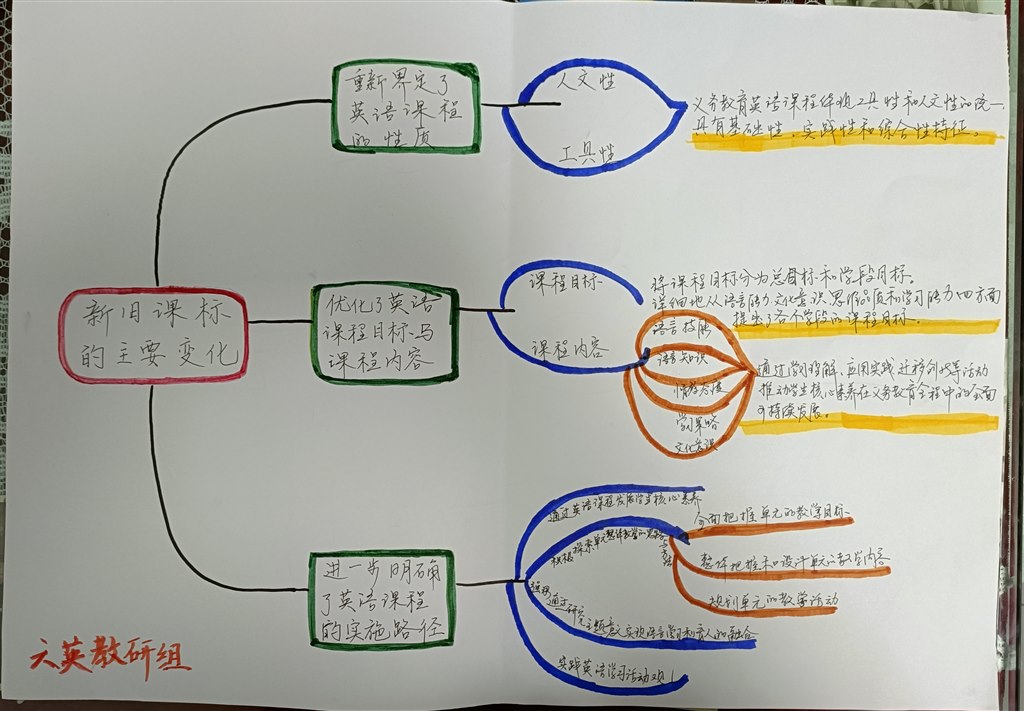 新旧课标
的主要变化
重新界定了
英语课程
的性质
人文性
工具性
义务教育英语课程体现工具性和人文性的统一
具有基础性、实践性和综合性特征。
优化了英语
课程目标与
课程内容
课程目标
将课程目标分为总目标和学段目标。
详细地从语言能力文化意识思维品质和学习能力四方面
提出了各个学段的课程目标。
课程内容
语言技能
语言知识
情感态度
学习策略
文化意识
通过学习理解、应用实践迁移创新等活动
推动学生核心素养在义务教育全程中的全面
可持续发展。
进一步明确
了英语课程
的实施路径
通过英语课程发展学生核心素养
积极探索单元整体教学的思路与方法
全面把握单元的教学目标
整体把握和设计单元的教学内容
规划单元的教学活动
强调通过研究主题意义实现语言学习和育人的融合
实践英语学习活动观
六英教研组